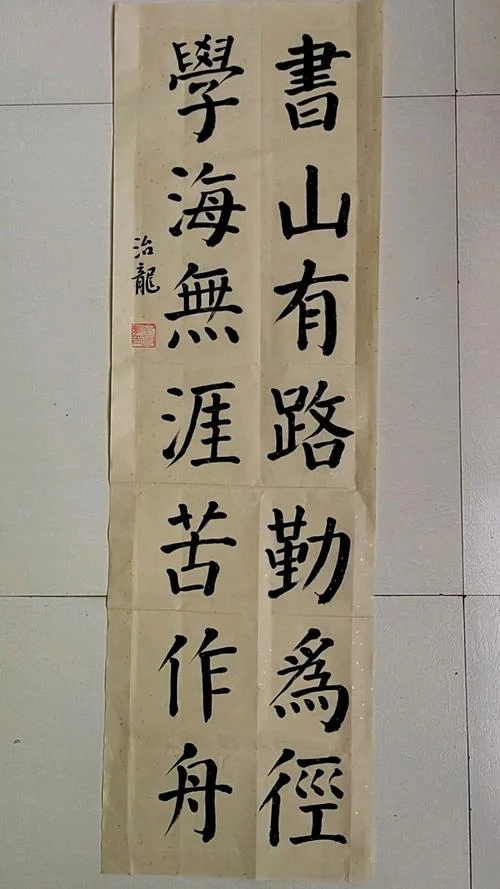 書山有路勤為徑
學海無涯苦作舟
治龍